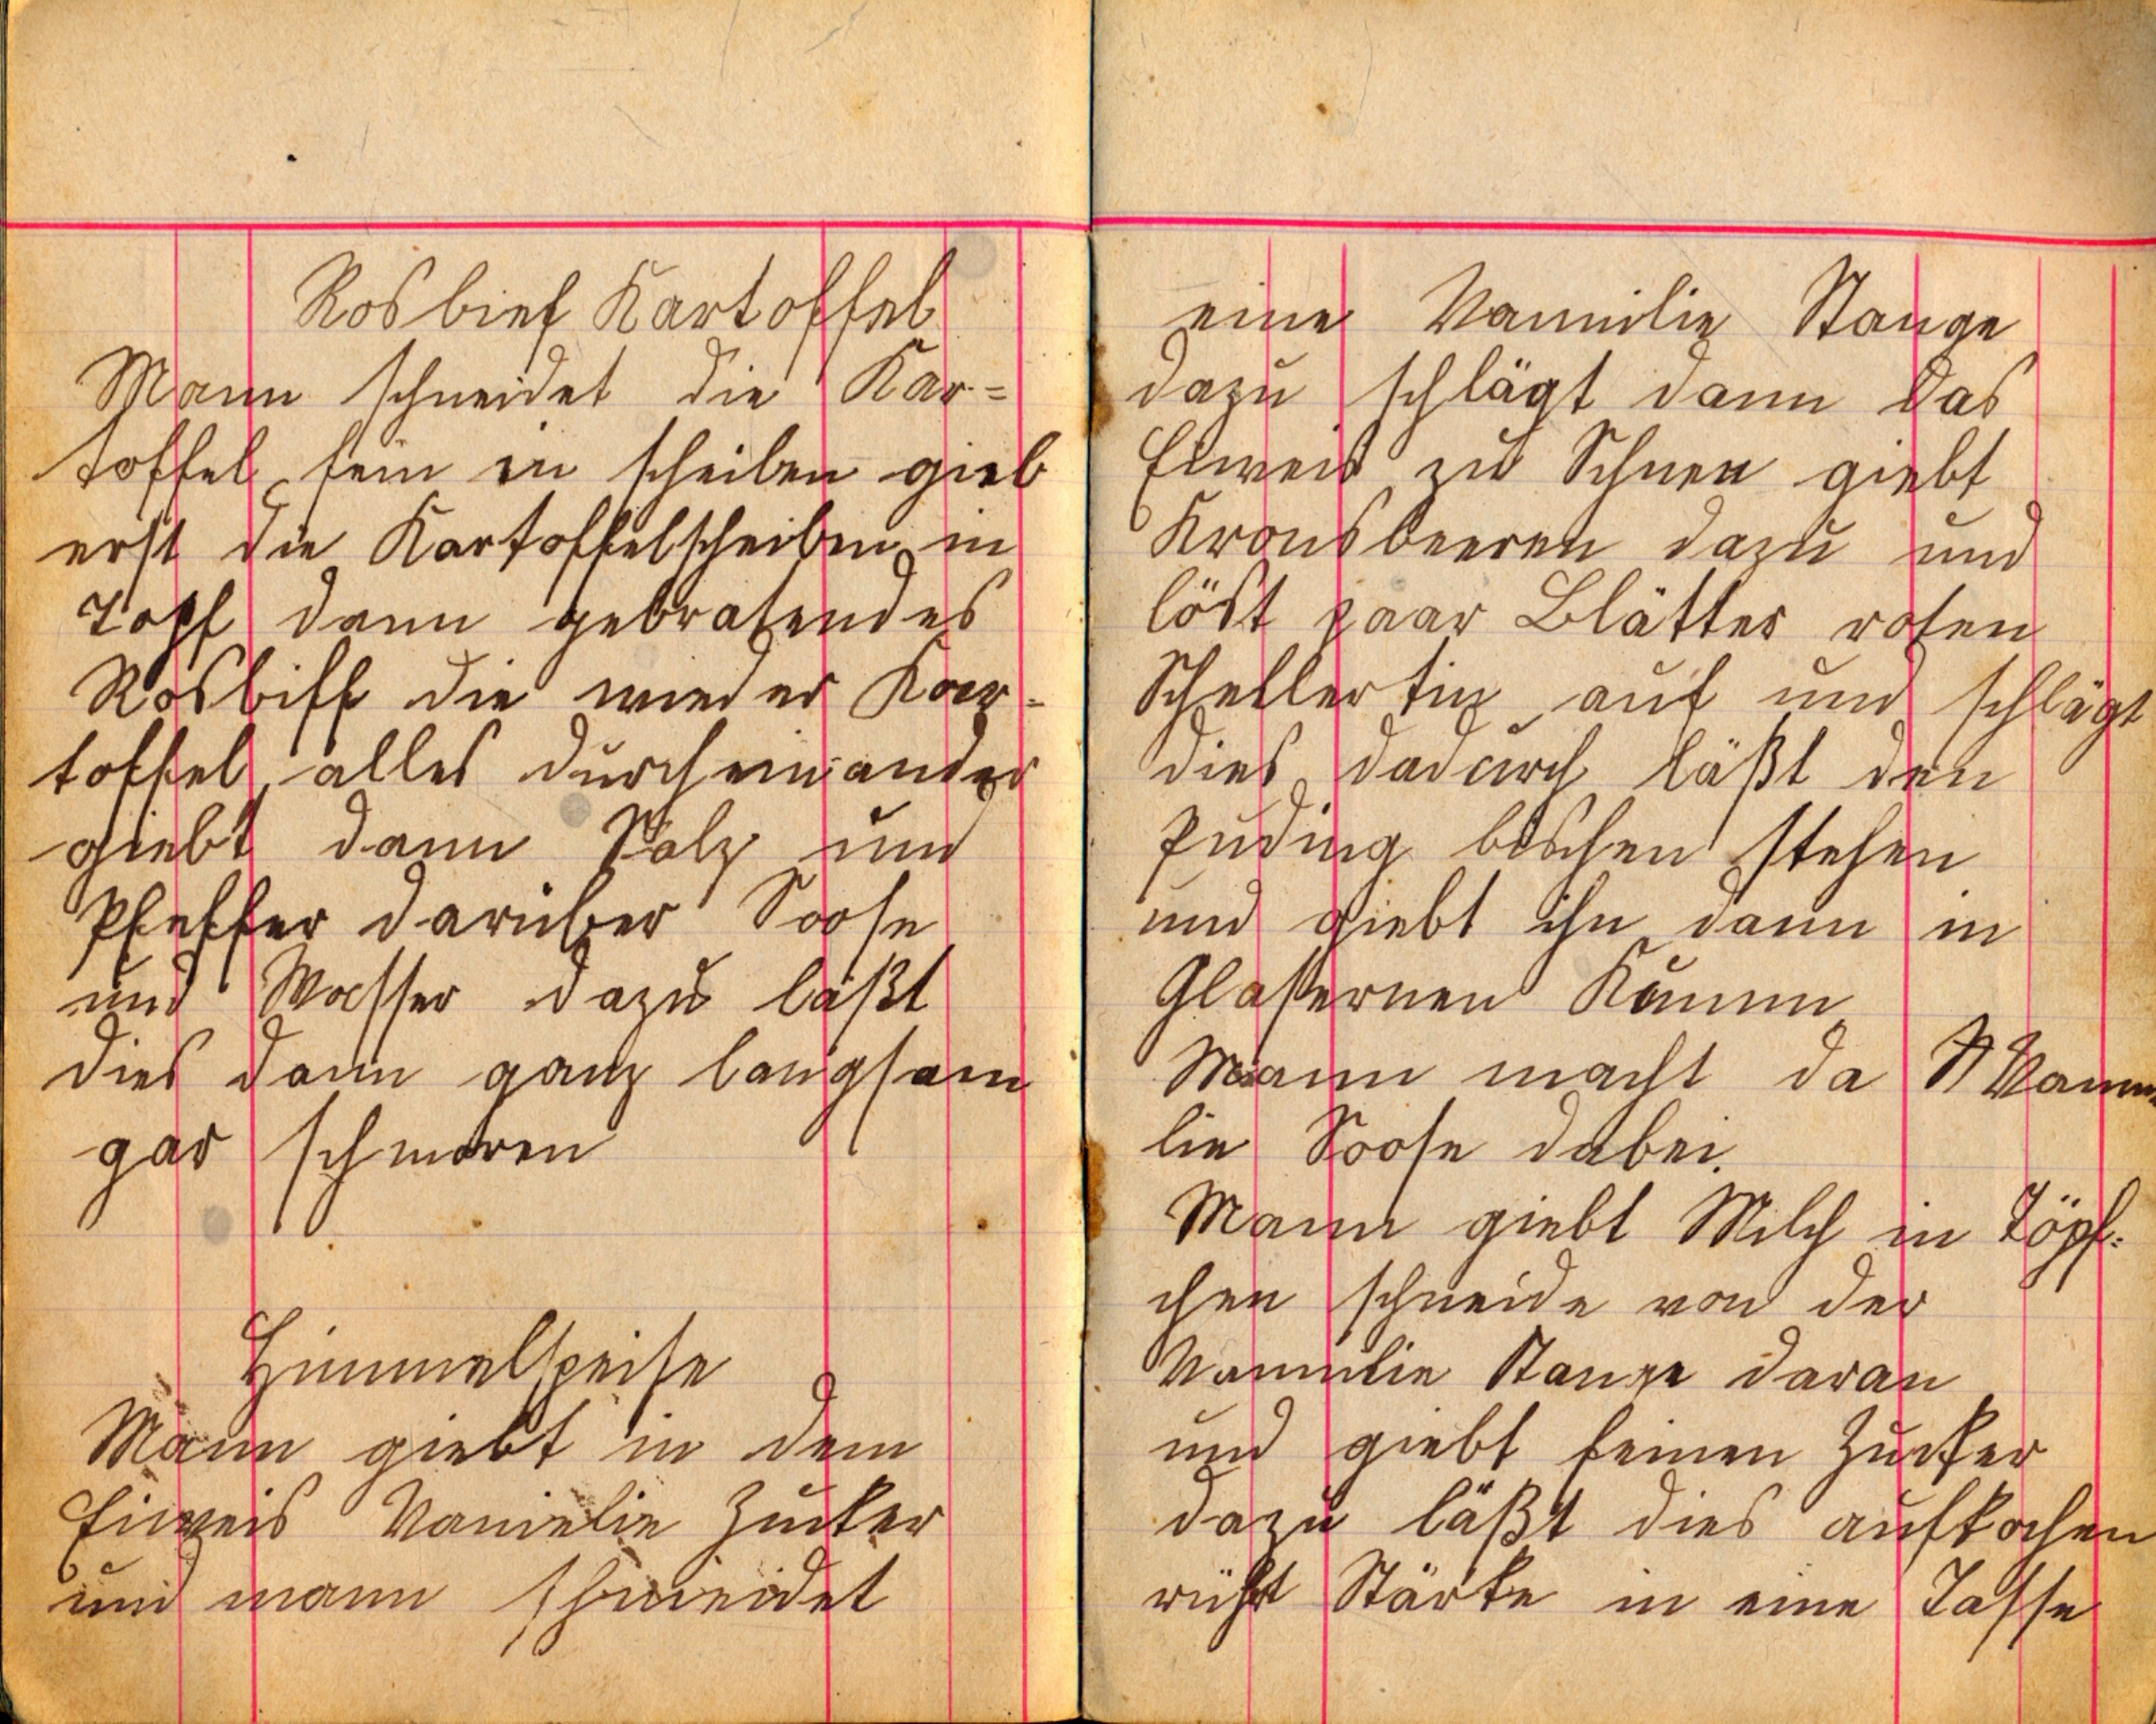 Rosbief Kartoffel
Mann schneidet die Kar=
toffel fein in scheiben gieb
erst die Kartoffelscheiben in
Topf dann gebratendes
Rosbiff die wieder Kar=
toffel alles durcheinander
giebt dann Salz und
Pfeffer darüber Soose
und Wasser dazu läßt
dies dann ganz langsam
gar schmoren
Himmelspeise
Mann giebt in dem
Eiweis Vanielie Zucker
und mann schneidet
eine Vannilie Stange
dazu schlägt dann das
Eiweis zu Schnee giebt
Kronsbeeren dazu und
löst paar Blätter roten
Schellertin auf und schlägt
dies dadurch läßt den
Puding bischen stehen
und giebt ihn dann in
Glasernen Kumm
Mann macht da Vanni
lie Soose dabei.
Mann giebt Milch in Töpf=
chen schneide von der
Vannilie Stange daran
und giebt feinen Zucker
dazu läßt dies aufkochen
rührt Stärke in eine Tasse